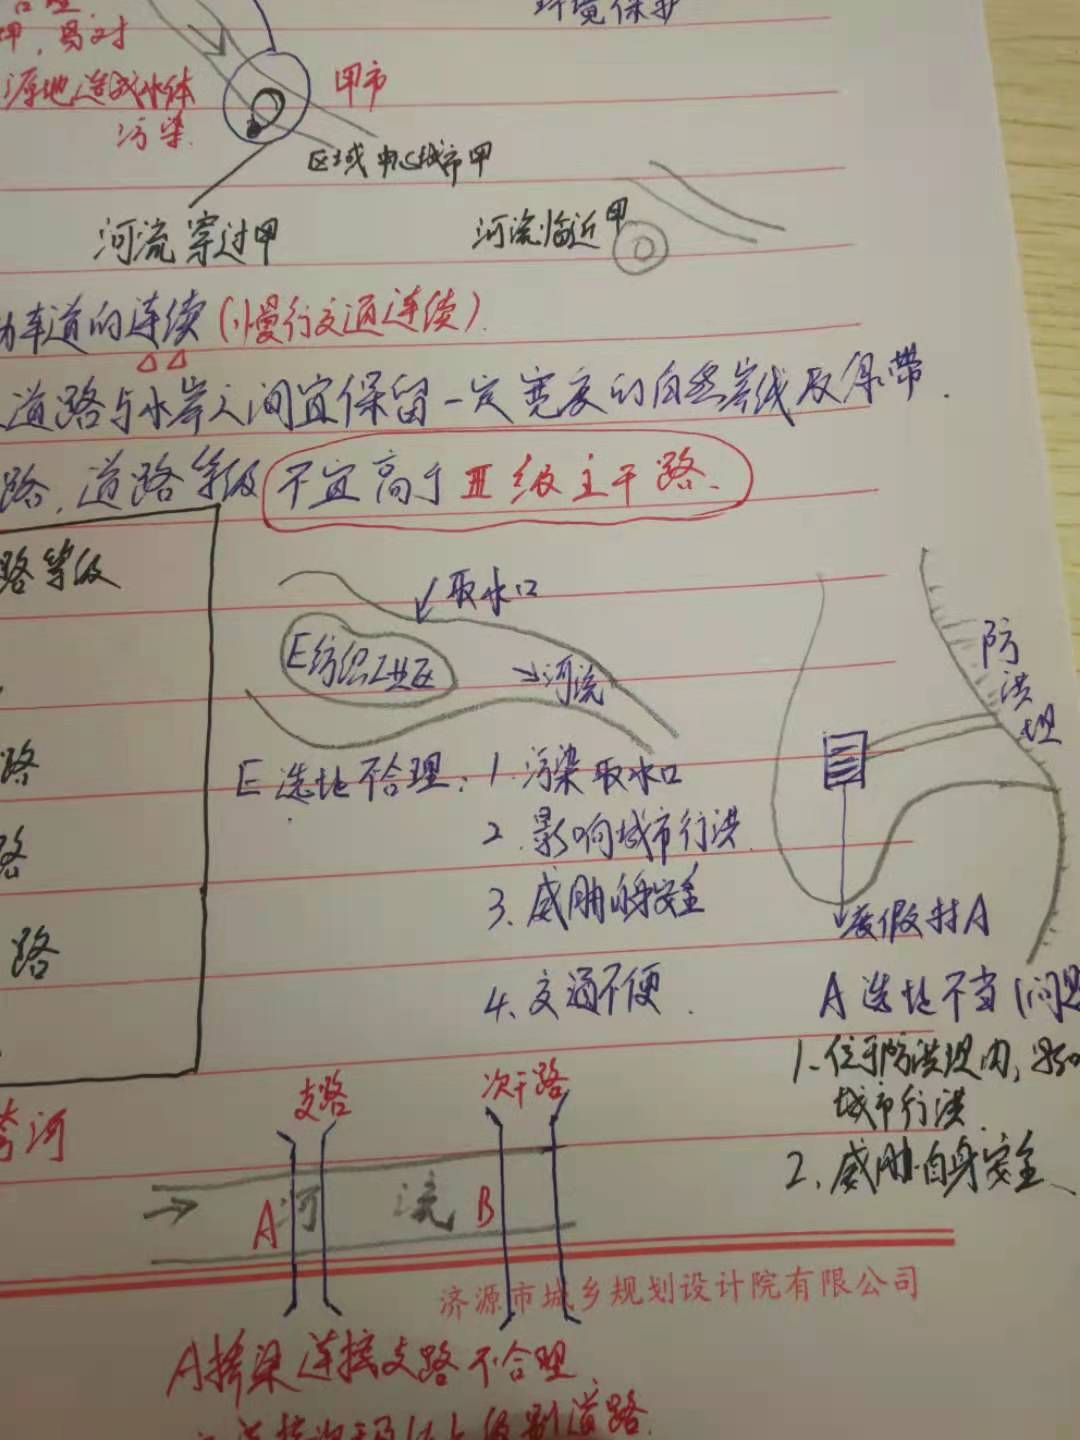 环境保护
合理
甲，易对
源地造成水体
污染.
甲市
区域中心城市甲
河流穿过甲
河流临近甲
动车道的连续(慢行交通连续).
道路与水岸之间宜保留一定宽度的自然岸线及绿带.
路,道路等级不宜高于Ⅲ级主干路.
路等级
路
路
路
取水口
E纺织工业区
河流
防洪堤
E选址不合理: 1.污染取水口
2.影响城市行洪.
3、威胁自身安全
4、交通不便.
度假村A
A选址不当
1.位于防洪堤内,影响
城市行洪.
2、威胁自身安全、
跨河
支路
次干路
A
河流
B
济源市城乡规划设计院有限公司
A桥梁连接支路不合理
级别道路.